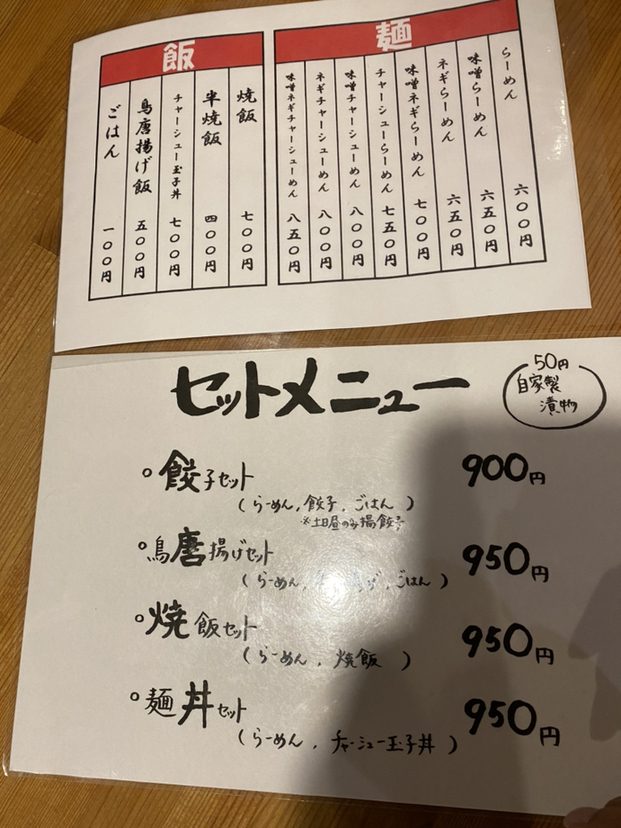 麺
らーめん 六〇〇円
味噌らーめん 六五〇円
ネギらーめん 六五〇円
味噌ネギらーめん 七〇〇円
チャーシューらーめん 七五〇円
味噌チャーシューめん 八〇〇円
ネギチャーシューめん 八〇〇円
味噌ネギチャーシューめん 八五〇円
飯
焼飯 七〇〇円
半焼飯 四〇〇円
チャーシュー玉子丼 七〇〇円
鳥唐揚げ飯 五〇〇円
ごはん 一〇〇円
セットメニュー
50円
自家製
漬物
餃子セット 900円
(らーめん,餃子,ごはん)
※土日昼のみ揚餃子
鳥唐揚げセット 950円
(らーめん, ,ごはん)
焼飯セット 950円
(らーめん,焼飯)
麺丼セット 950円
(らーめん,チャーシュー玉子丼)